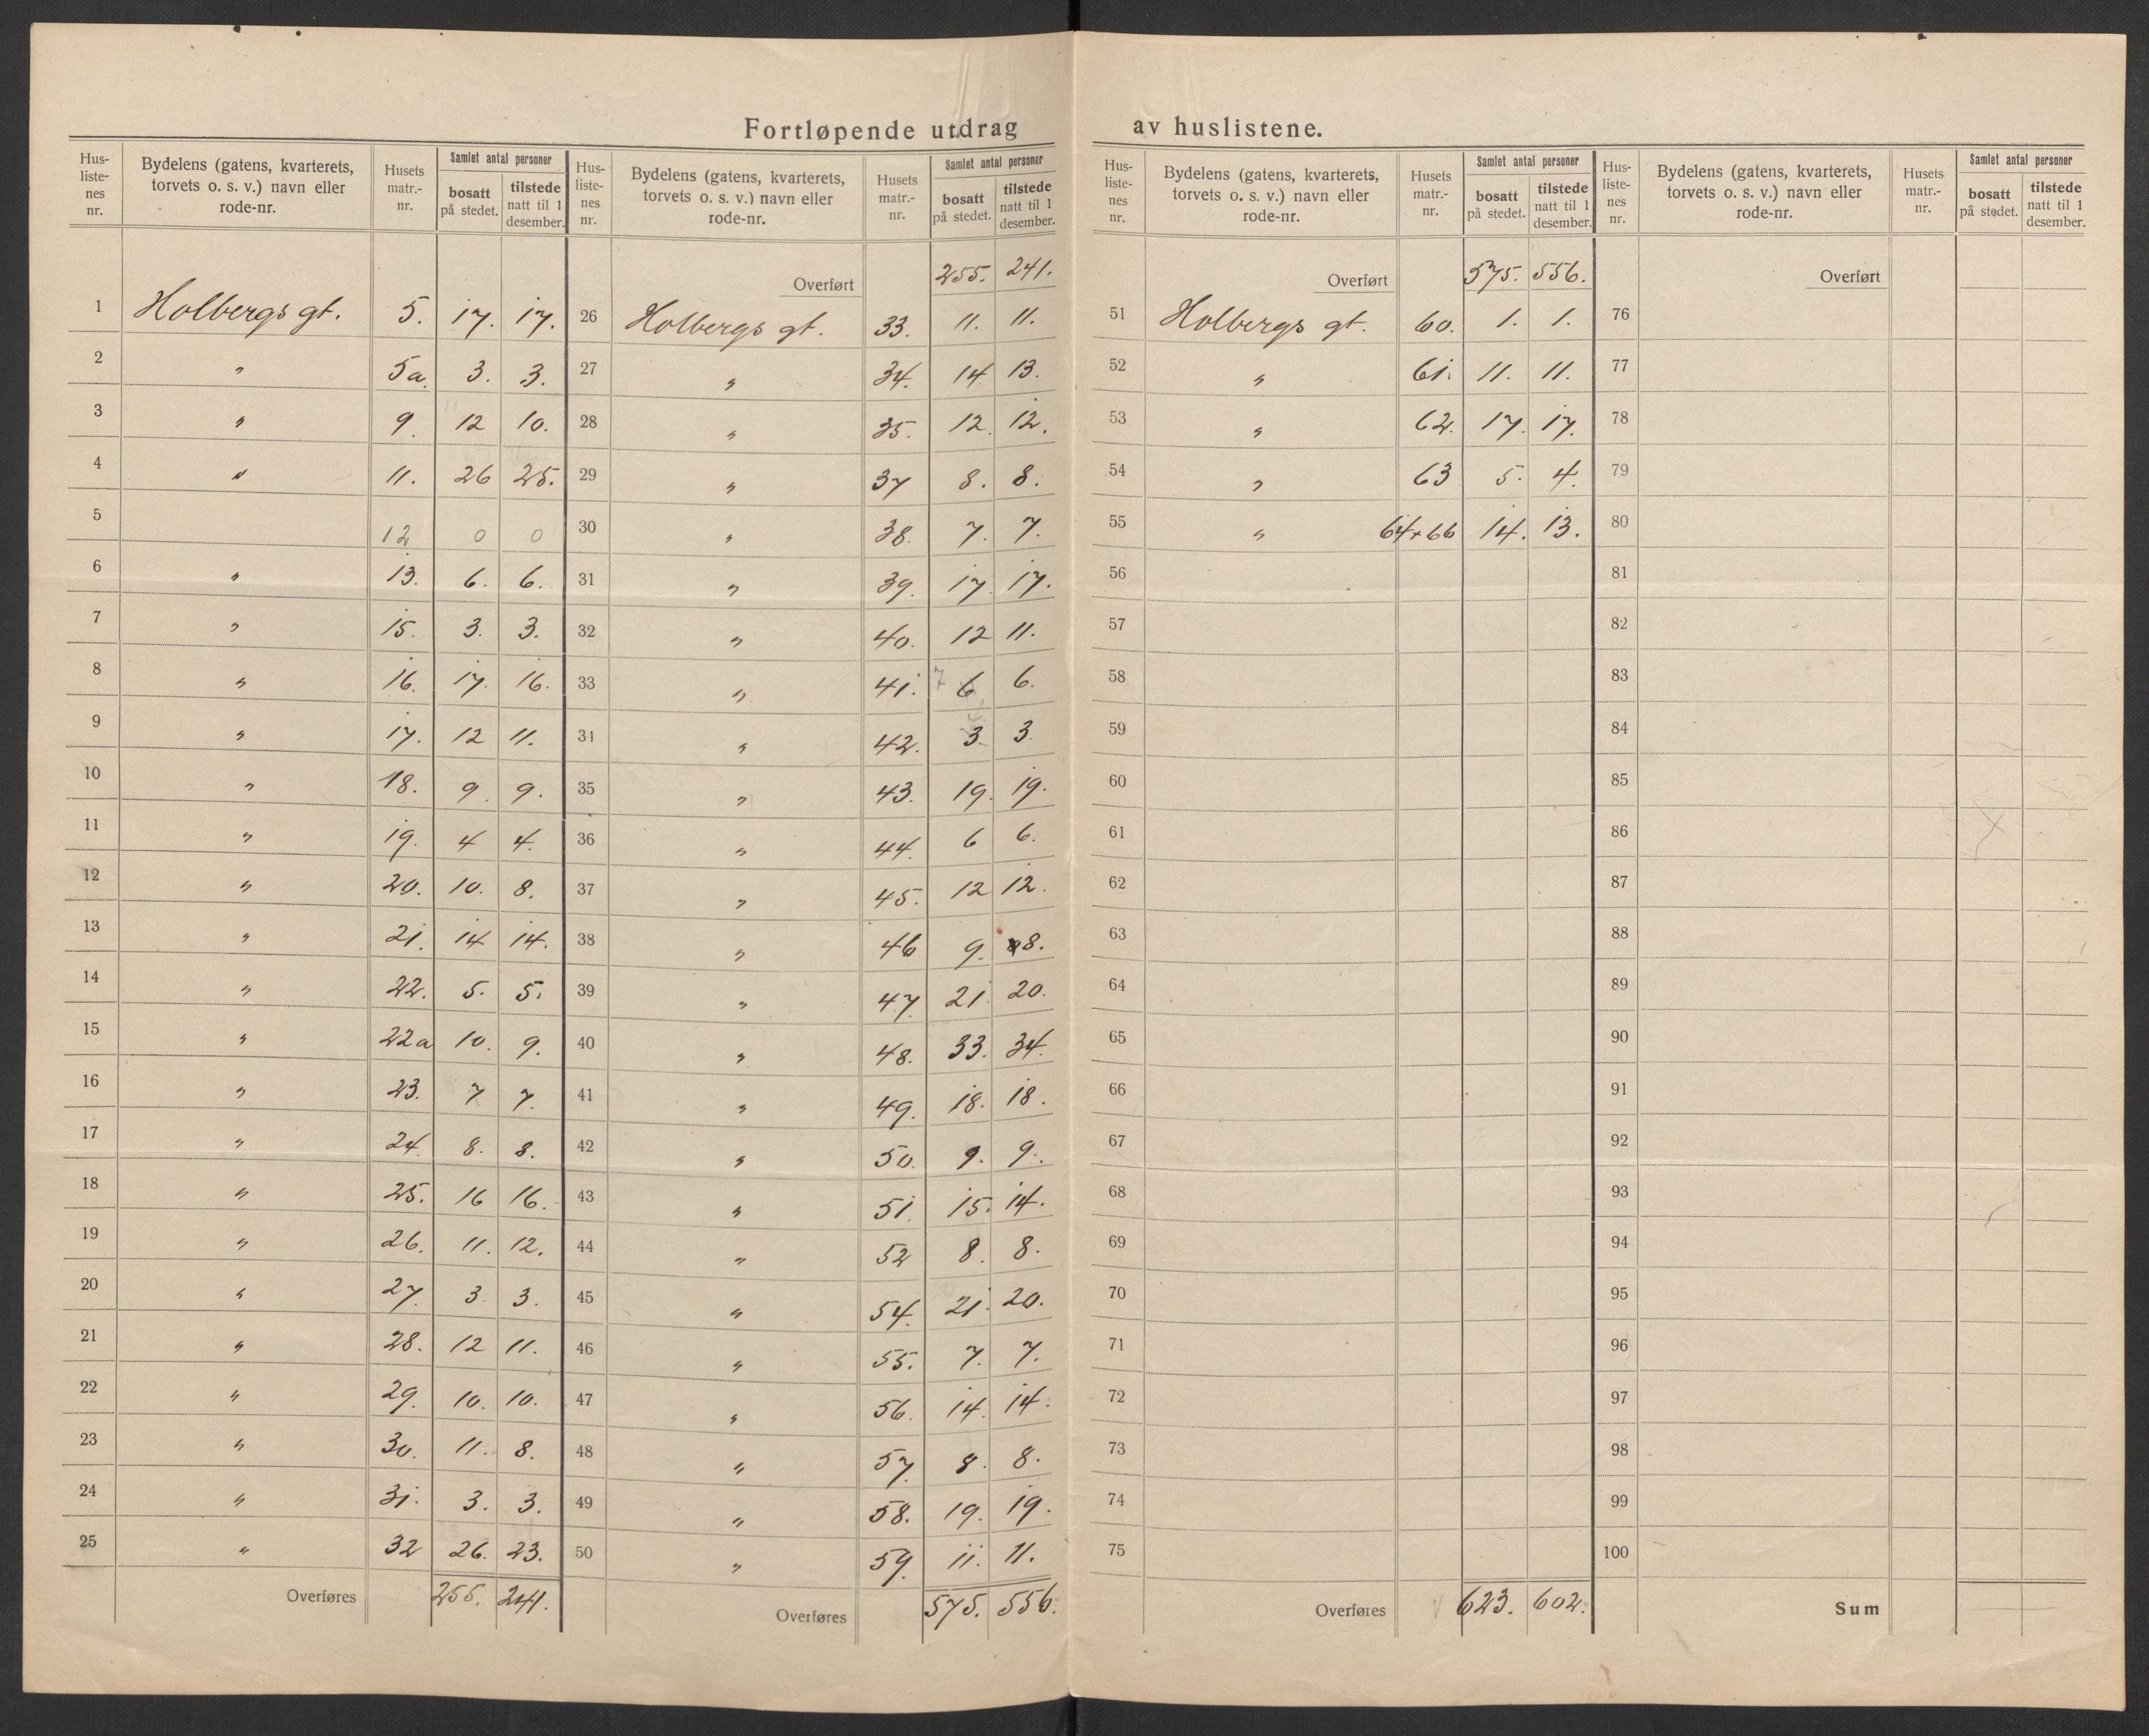 Fortløpende utdrag av huslistene.
Hus-listenes nr. | Bydelens (gatens, kvarterets, torvets o. s. v.) navn eller rode-nr. | Husets matr.-nr. | Samlet antal personer | bosatt på stedet. | tilstede natt til 1 desember.
1 Holbergs gt. 5. 17. 17.
2 " 5a. 3. 3.
3 " 9. 12 10.
4 " 11. 26 25.
5 12 0 0
6 " 13. 6. 6.
7 " 15. 3. 3.
8 " 16. 17. 16.
9 " 17. 12 11.
10 " 18. 9. 9.
11 " 19. 4 4.
12 " 20. 10. 8.
13 " 21. 14 14.
14 " 22. 5. 5.
15 " 22a 10. 9.
16 " 23. 7 7.
17 " 24. 8. 8.
18 " 25. 16 16.
19 " 26. 11. 12.
20 " 27. 3. 3.
21 " 28. 12 11.
22 " 29. 10. 10.
23 " 30. 11. 8.
24 " 31. 3. 3.
25 " 32 26. 23.
Overføres 255. 241.
Hus-listenes nr. | Bydelens (gatens, kvarterets, torvets o. s. v.) navn eller rode-nr. | Husets matr.-nr. | Samlet antal personer | bosatt på stedet. | tilstede natt til 1 desember.
Overført 255. 241.
26 Holbergs gt. 33. 11. 11.
27 " 34. 14 13.
28 " 35. 12. 12.
29 " 37 8. 8.
30 " 38. 7. 7.
31 " 39. 17. 17.
32 " 40. 12 11.
33 " 41. 7 6 6.
34 " 42. 3 3
35 " 43. 19. 19.
36 " 44. 6 6.
37 " 45. 12 12.
38 " 46 9. 8.
39 " 47 21. 20.
40 " 48. 33. 34.
41 " 49. 18. 18.
42 " 50. 9. 9.
43 " 51. 15. 14.
44 " 52 8. 8.
45 " 54. 21. 20.
46 " 55. 7. 7.
47 " 56. 14. 14.
48 " 57. 8. 8.
49 " 58. 19. 19.
50 " 59. 11. 11.
Overføres 575. 556.
Hus-listenes nr. | Bydelens (gatens, kvarterets, torvets o. s. v.) navn eller rode-nr. | Husets matr.-nr. | Samlet antal personer | bosatt på stedet. | tilstede natt til 1 desember.
Overført 575. 556.
51 Holbergs gt. 60. 1. 1.
52 " 61. 11. 11.
53 " 62. 17. 17.
54 " 63 5. 4.
55 " 64+66 14. 13.
56
57
58
59
60
61
62
63
64
65
66
67
68
69
70
71
72
73
74
75
Overføres 623. 602.
Hus-listenes nr. | Bydelens (gatens, kvarterets, torvets o. s. v.) navn eller rode-nr. | Husets matr.-nr. | Samlet antal personer | bosatt på stedet. | tilstede natt til 1 desember.
Overført
76
77
78
79
80
81
82
83
84
85
86
87
88
89
90
91
92
93
94
95
96
97
98
99
100
Sum